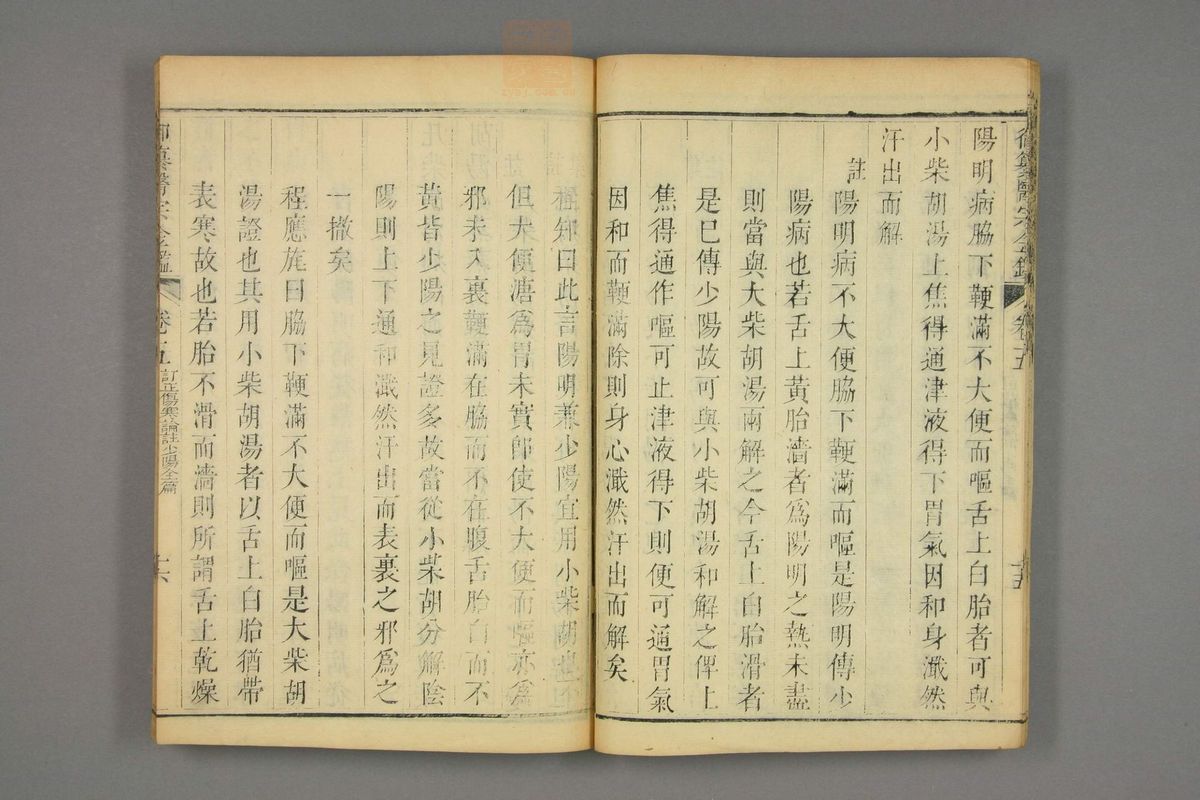 陽明病脇下鞕滿不大便而嘔舌上白胎者可與
小柴胡湯上焦得通津液得下胃氣因和身濈然
汗出而解
註
陽明病不大便脇下鞕滿而嘔是陽明傳少
陽病也若舌上黃胎濇者爲陽明之熱未盡
則當與大柴胡湯兩解之今舌上白胎滑者
是已傳少陽故可與小柴胡湯和解之俾上
焦得通作嘔可止津液得下則便可通胃氣
因和而鞕滿除則身心濈然汗出而解矣
程知曰此言陽明兼少陽宜用小柴胡也不
但大便溏爲胃未實即使不大便而嘔亦爲
邪未入裏鞕滿在脇而不在腹舌胎白而不
黃皆少陽之見證多故當從小柴胡分解陰
陽則上下通和濈然汗出而表裏之邪爲之
一撤矣
程應旄曰脇下鞕滿不大便而嘔是大柴胡
湯證也其用小柴胡湯者以舌上白胎猶帶
表寒故也若胎不滑而濇則所謂舌上乾燥
御纂醫宗金鑑
卷五
訂正傷寒論註少陽全篇